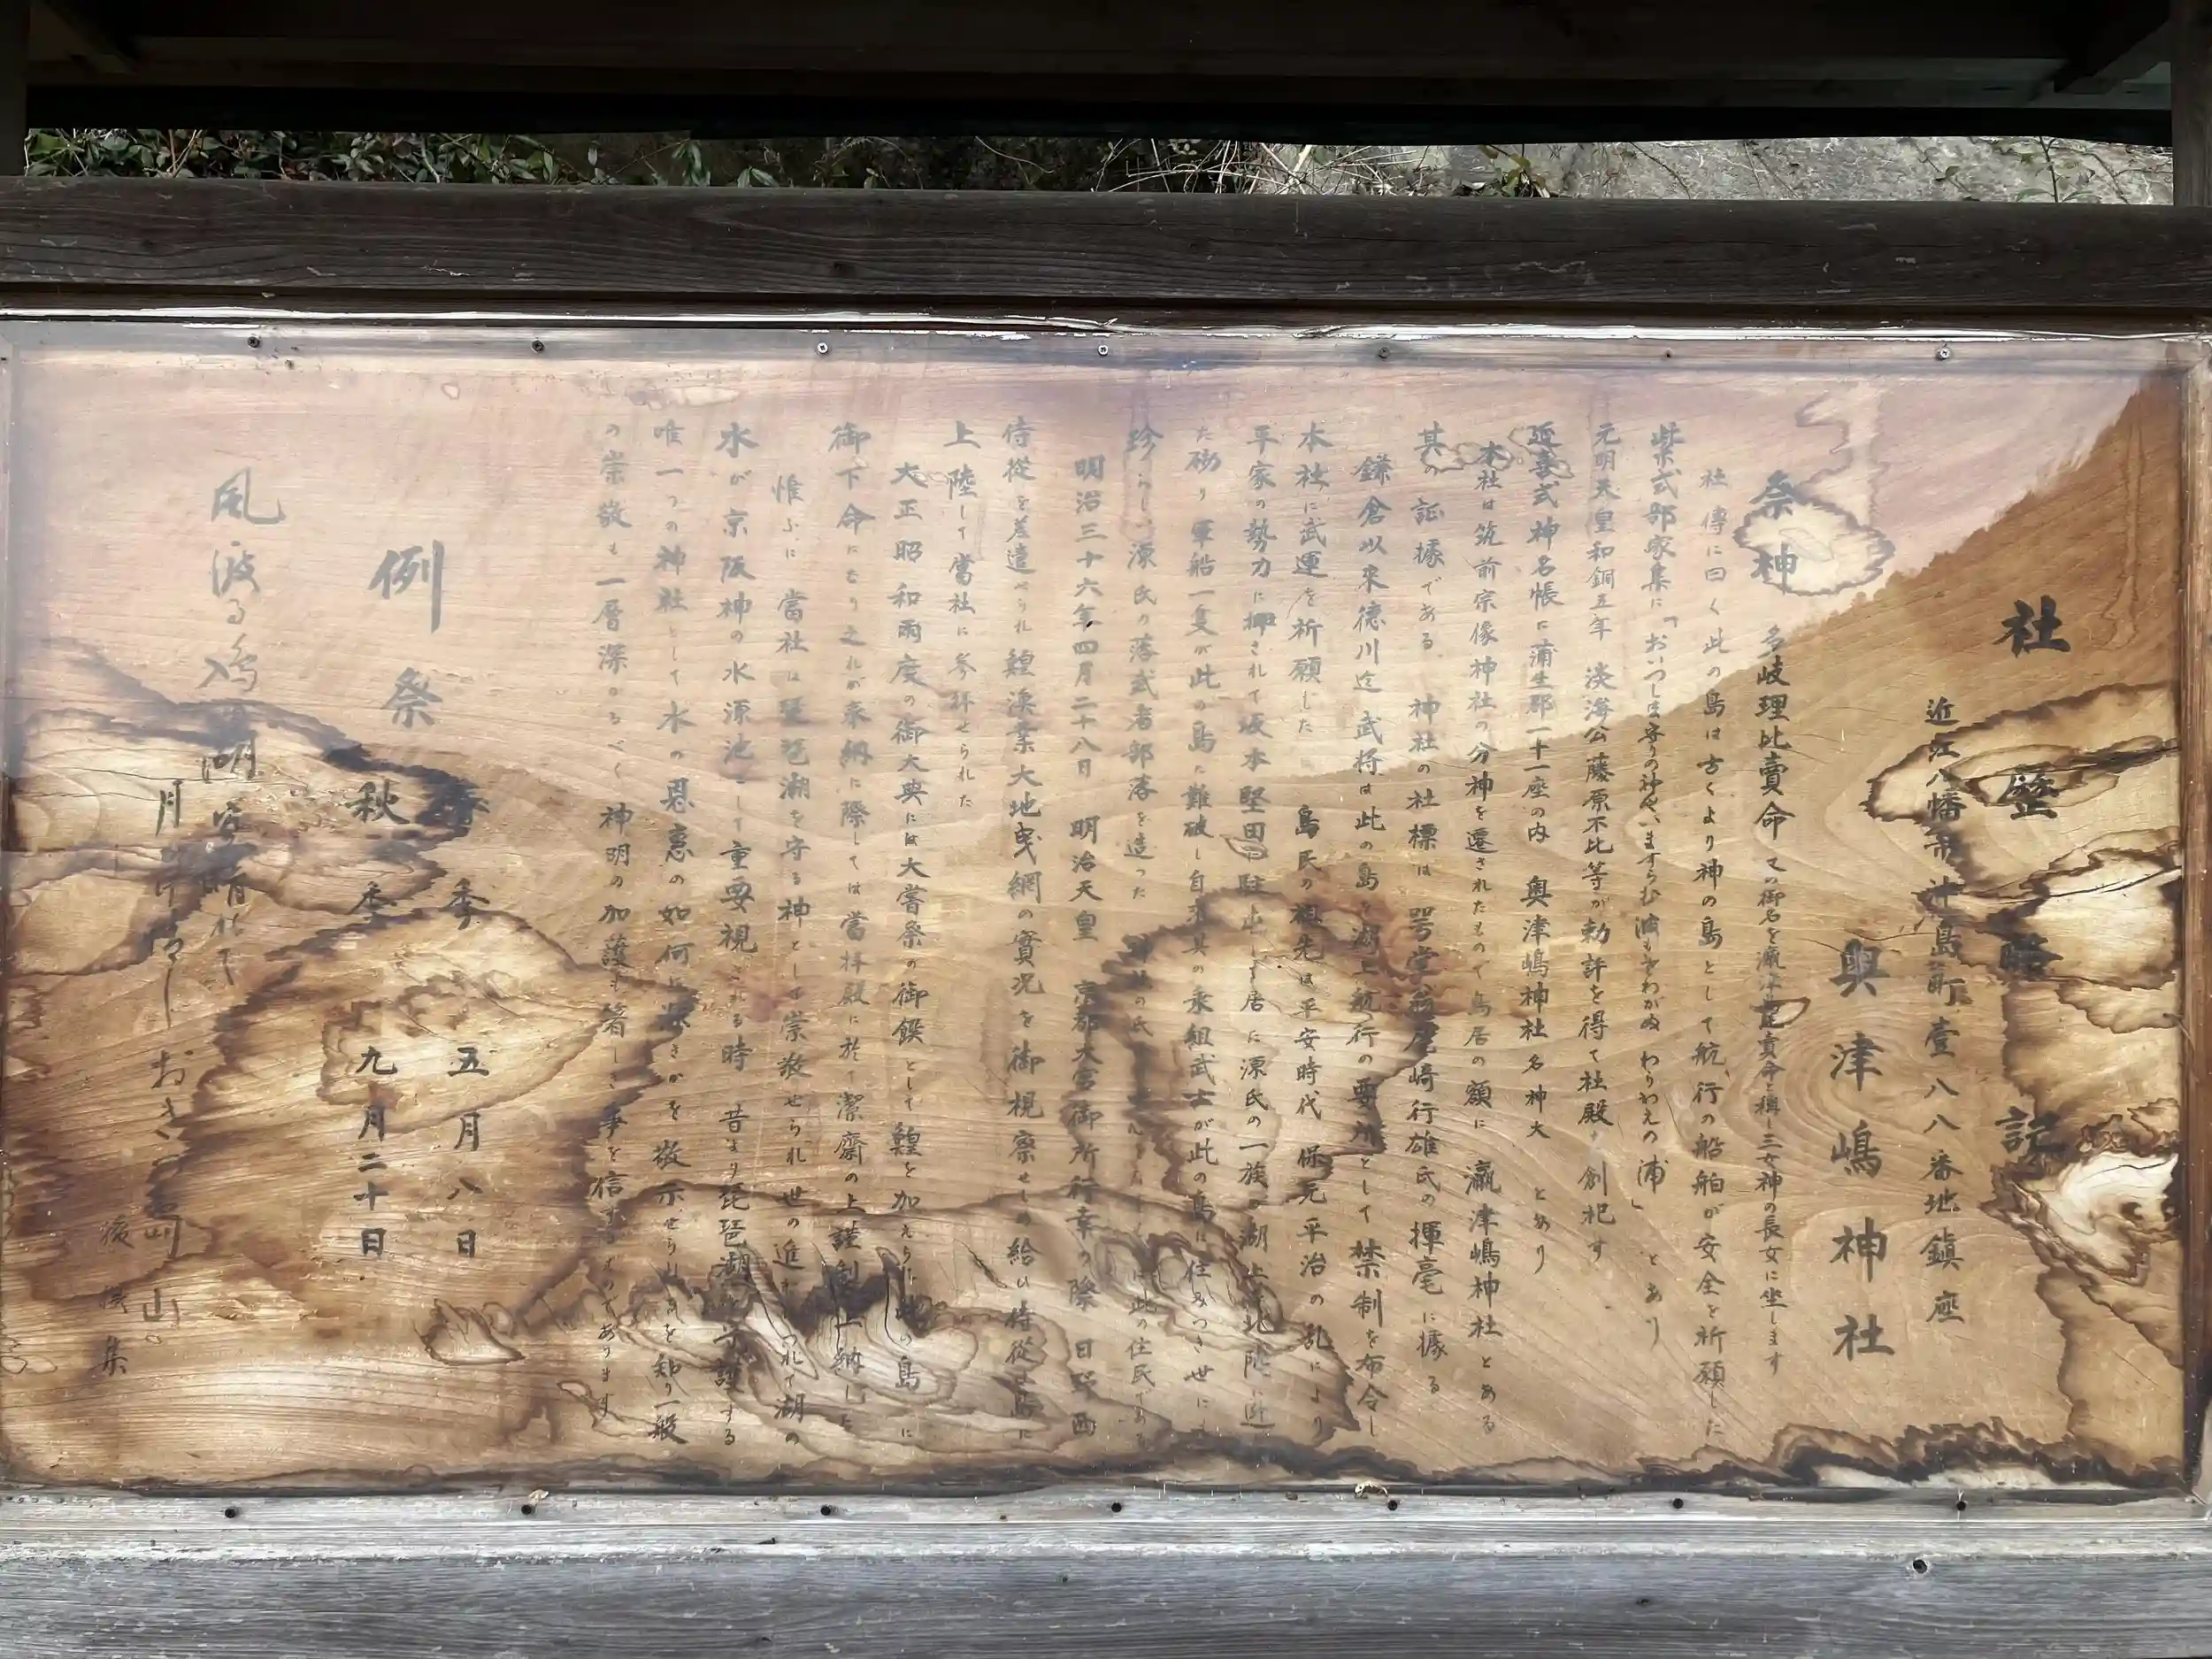 社誌略記
近江八幡市沖島町壹八八番地鎮座
奥津嶋神社
祭神 多岐理比賣命 ての御名を瀛津島比賣命と稱し三女神の長女に坐します
社傳に曰く此の島は古くより神の島として航行の船舶が安全を祈願した
紫式部家集に「おいつしま守の神やいますらむ波もさわがぬわらわえの浦」とあり
元明天皇和銅五年 淡海公藤原不比等が勅許を得て社殿を創祀す
延喜式神名帳に蒲生郡一十一座の内 奥津嶋神社名神大 とあり
本社は筑前宗像神社の分神を遷されたもので鳥居の額に 瀛津嶋神社とある
其の証據である 神社の社標は 咢堂翁尾崎行雄氏の揮毫に據る
鎌倉以来徳川迄 武将は此の島を湖上航行の要所として禁制を布令し
本社に武運を祈願した 島民の祖先は平安時代 保元平治の乱により
平家の勢力に押されて坂本堅田に駐屯して居に源氏の一族が湖上北陸に逃
た砌り軍船一隻が此の島に難破し自来其の乗組武士が此の島に住みつき世にも
珍らしい源氏の落武者部落を造った の氏 此の住民である
明治三十六年四月二十八日 明治天皇 京都大宮御所行幸の際 日野西
侍從を差遣せられ鯉漁業大地曳網の實況を御視察せしめ給ひ侍從は島に
上陸して當社に参拝せられた
大正昭和両度の御大典には大嘗祭の御饌として 鯉を加えられ此の島に
御下命になり之れが奉納に際しては當拝殿に於て潔齋の上謹製上納した
惟ふに當社は琵琶湖を守る神として崇敬せられ世の進むにつれて湖の
水が京阪神の水源池として重要視される時 昔より琵琶湖を守護する
唯一つの神社として水の恩恵の如何に深きかを敬示せられ を知り一般
の崇敬も一層深かるべく 神明の加護も著しき事を信ずるものであります
例祭
春季 五月八日
秋季 九月二十日
風波る 湖 晴れて
月 清し おき つ島山
後撰集